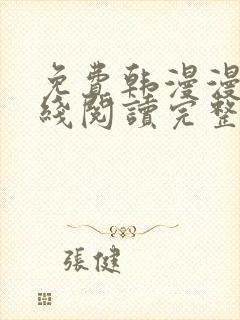 免費韩漫漫
綫閱讀完整
張健